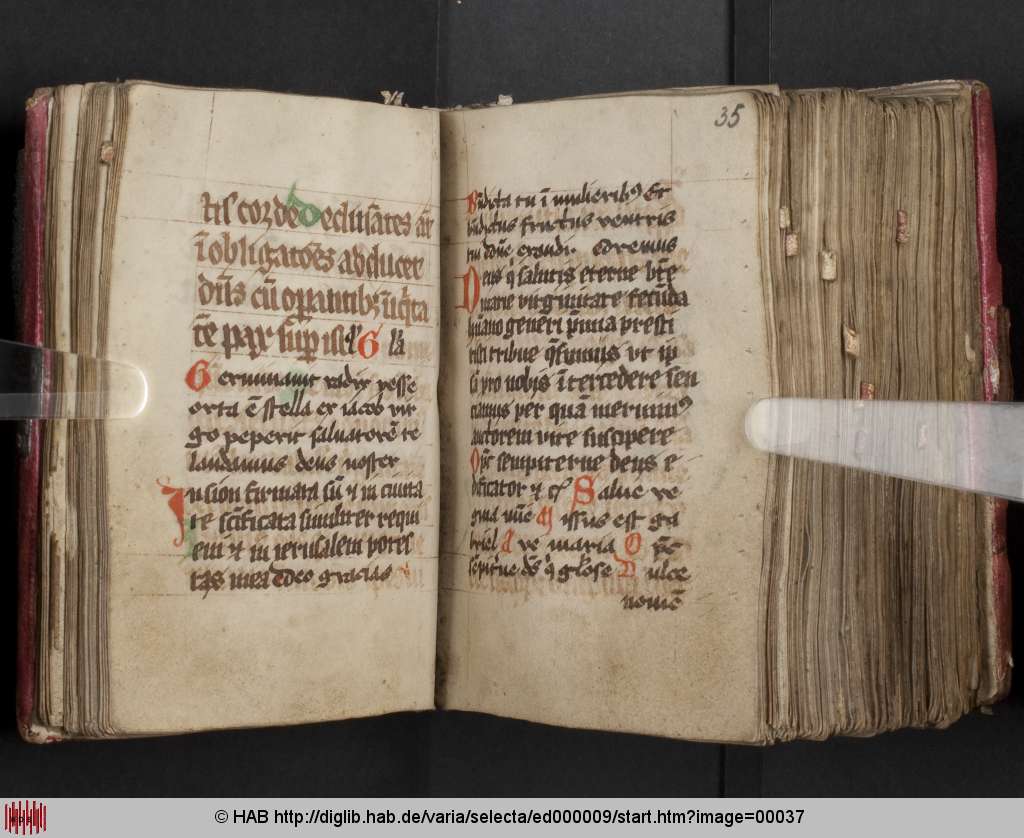 tis corde Declinātes aūt
ī obligatōēs adducet
dn̄s cū opantibꝫ īiqͥta
tē pax suꝑ isrl̄ Gl̄a
Germinavit radix yesse
orta ē stella ex iacob vir
go peperit salvatorē te
laudamus deus noster
In sion firmata sū et in civita
te scīficata similiter requi
evi et in jerusalem potes
tas mea Deo gracias
Bn̄dicta tu ī mulieribꝰ Et
bn̄dictus fructus ventris
tui Dn̄e exaudi Oremus
Deus qͥ salutis eterne bt̄e
marie virginitate fecūda
humano generi p̄mia presti
tisti tribue qs̄umus ut ip
sā pro nobis ītercedere sen
ciamus per quā meruimꝰ
auctorem vite suscipere
Op̄s sempiterne deus e
dificator et cꝭ Salve re
gina Missus est ga
briel Ave maria Op̄s
sēpit̄ne ds̄ qͥ gl̄ose Dulce
nomē
35
© HAB http://diglib.hab.de/varia/selecta/ed000009/start.htm?image=00037